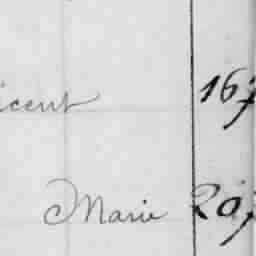 icent 167
Marie 207